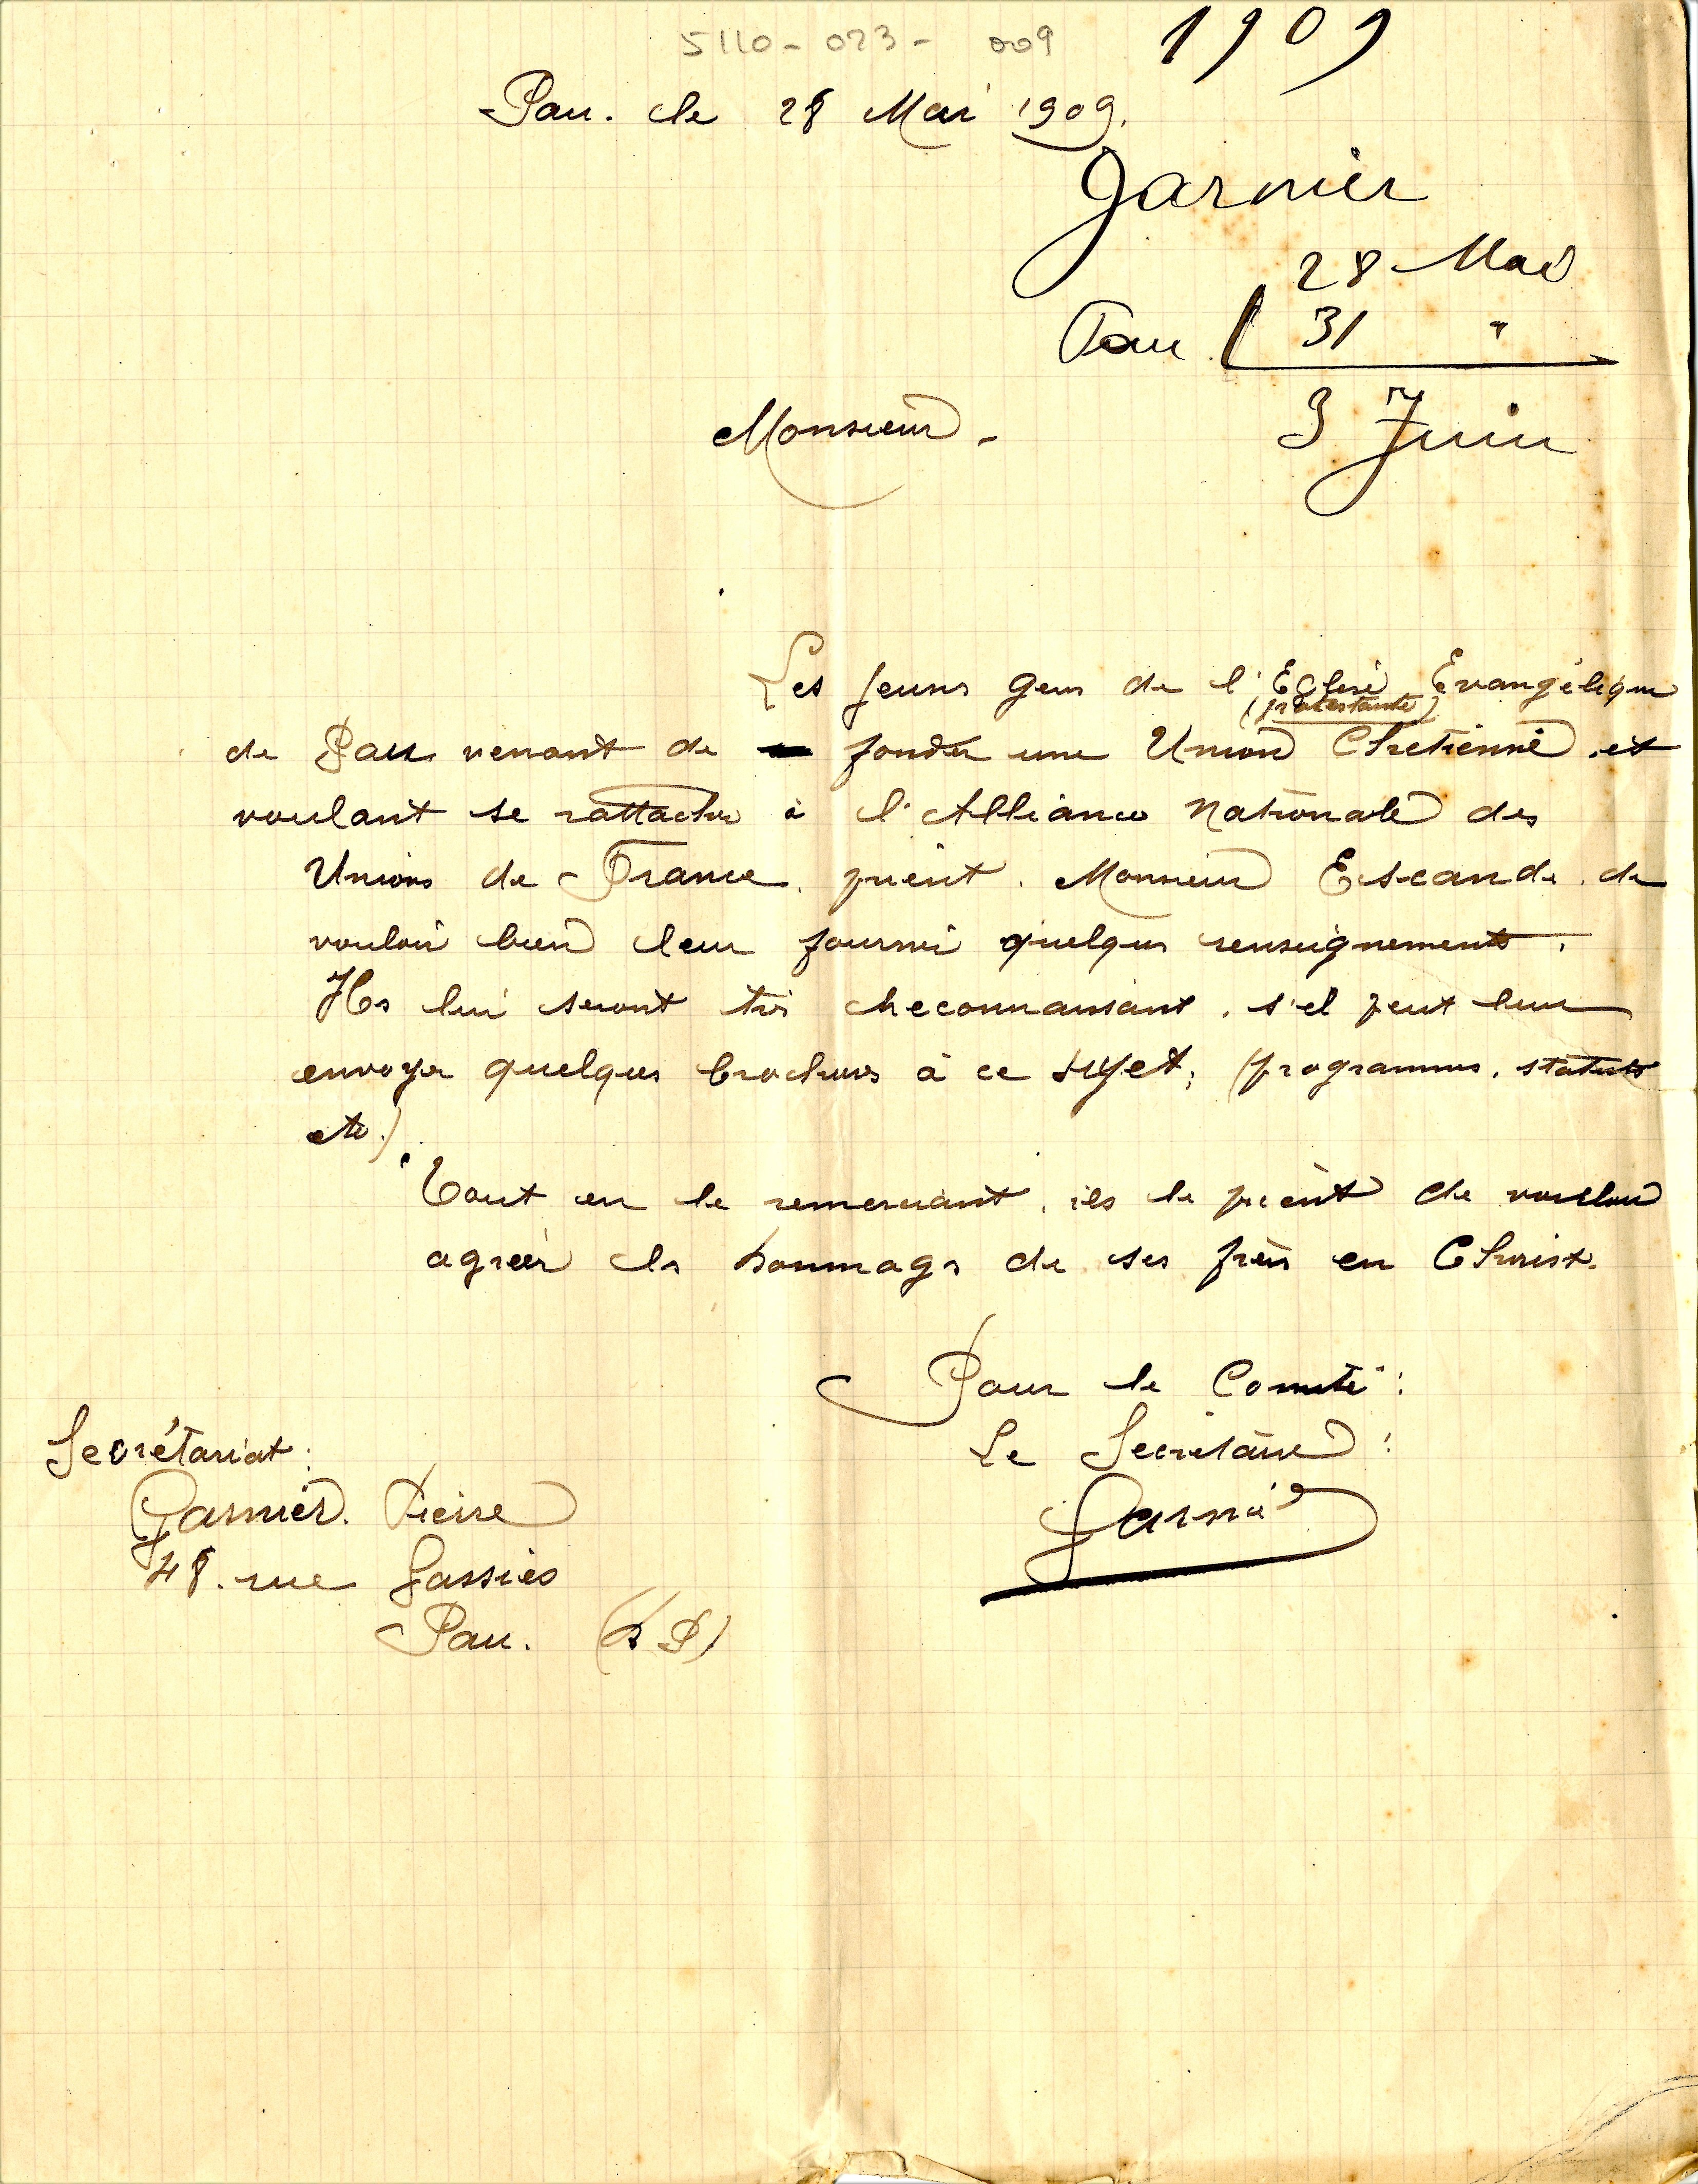 5110-023-009
1909
Pau. le 28 Mai 1909.
Garnier
28 Mai
Pau 31 "
3 Juin
Monsieur.
Les jeunes gens de l'Eglise Evangélique
(protestante)
de Pau venant de fonder une Union Chretienne et
voulant se rattacher à l'Alliance Nationale des
Unions de France, prient Monsieur Escande de
vouloir bien leur fournir quelques renseignements.
Ils lui seront très reconnaissant, s'il peut leur
envoyer quelques brochures à ce sujet; (programmes, statuts
etc.)
Tout en le remerciant, ils le prient de vouloir
agréer les hommages de ses frères en Christ.
Pour le Comité:
Le Secrétaire:
Garnier
Secrétariat:
Garnier. Pierre
48. rue Gassies
Pau. (B P)